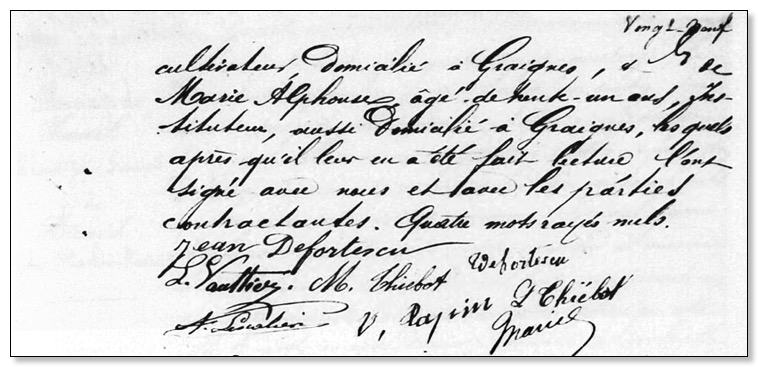 Vingt-neuf
cultivateur, Domicilié à Graignes, & de
Marie Alphonse, âgé de trente-un ans, Ins-
tituteur, aussi Domicilié à Graignes, lesquels
après qu'il leur en a été fait lecture l'ont
signé avec nous et avec les parties
contractantes. Quatre mots rayés nuls.
Jean Defortescu
L. Vauttier. M. Thiébot Defortescu
V, Papin L Thiëbot
Marie